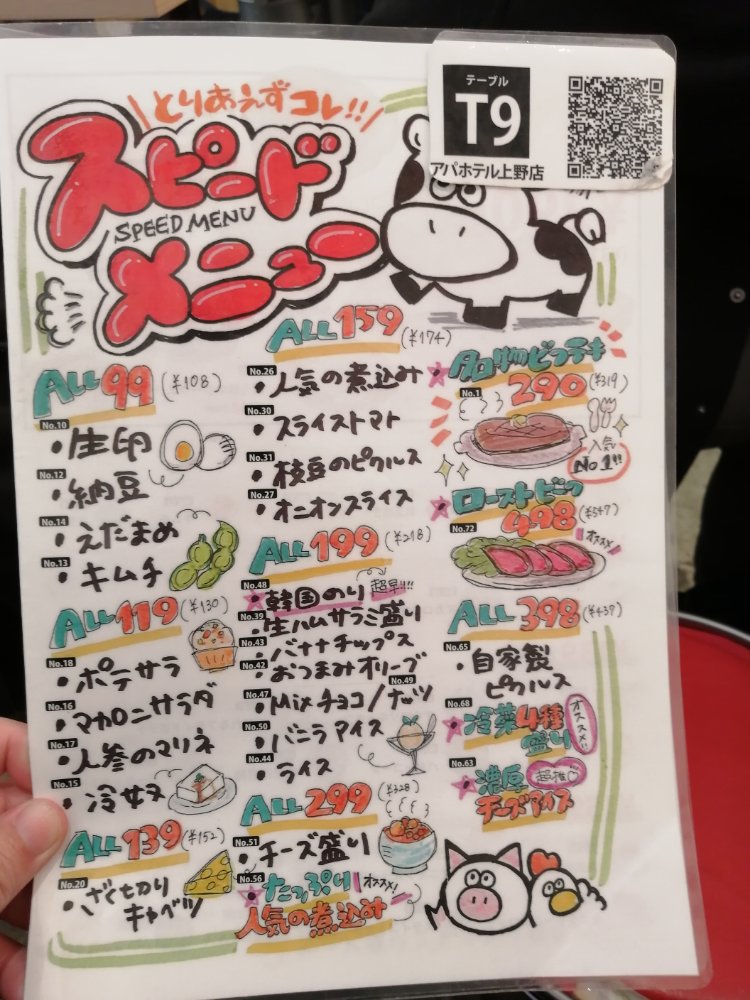 テーブル
T9
アパホテル上野店
とりあえずコレ!!
スピード
SPEED MENU
メニュー
ALL 99 (¥108)
No.10
・生卵
No.12
・納豆
No.14
・えだまめ
No.13
・キムチ
ALL 119 (¥130)
No.18
・ポテサラ
No.16
・マカロニサラダ
No.17
・人参のマリネ
No.15
・冷奴
ALL 139 (¥152)
No.20
・ざく切り
キャベツ
ALL 159 (¥174)
No.26
・人気の煮込み
No.30
・スライストマト
No.31
・枝豆のピクルス
No.27
・オニオンスライス
ALL 199 (¥218)
No.48
韓国のり 超早!!
No.39
・生ハムサラミ盛り
No.43
・バナナチップス
No.42
・おつまみオリーブ
No.47 No.49
・Mixチョコ/ナッツ
No.50
・バニラアイス
No.44
・ライス
ALL 299 (¥328)
No.51
・チーズ盛り
No.56
たっぷり オススメ!
人気の煮込み
名物ビフテキ
No.1
290 (¥319)
人気
No.1!!
ローストビーフ
No.72
498 (¥547)
オススメ
ALL 398 (¥437)
No.65
・自家製
ピクルス
No.68
冷菜4種
盛り オススメ!!
No.63
濃厚 超推♡
チーズアイス